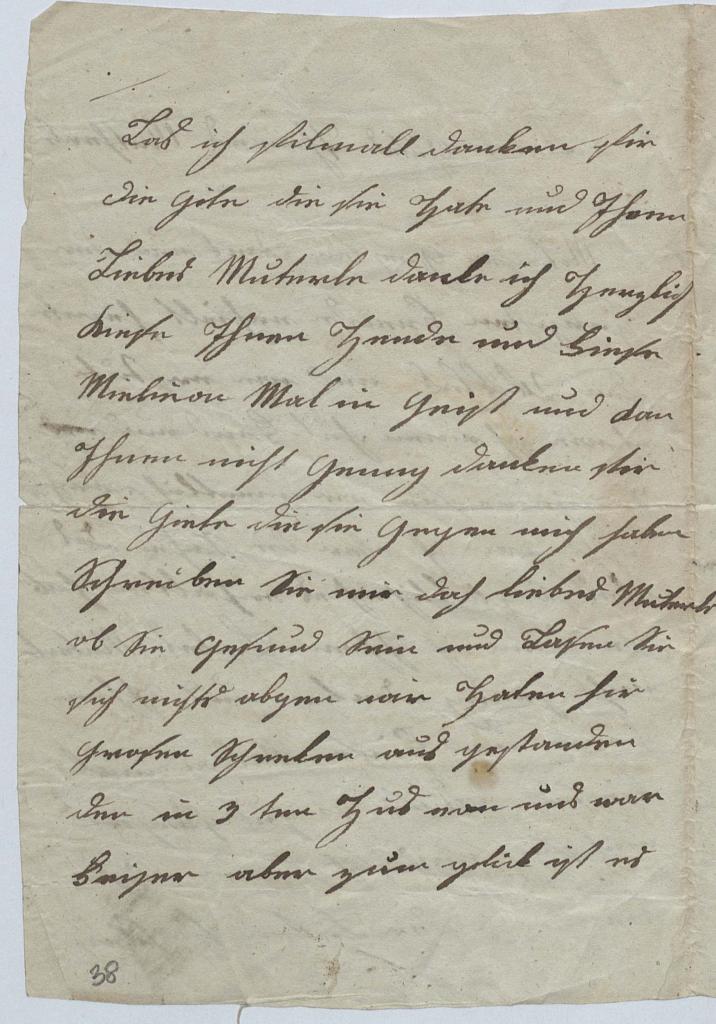 Las ich vilmall danken vir
die Gite die sie Hate und Ihnen
Liebes Muterle danke ich Herzlich
Kuese Ihnen Hende und Kiese
Mielinon Mal in Geist und kan
Ihnen nicht Genug danken vir
die Giete die sie Gegen mich haben
Schreiben Sie mir doch liebes Muterle
ob Sie Gesund Sein und Lasen Sie
sich nichts abgen wir Haten hir
Grosen Schreken aus gestanden
den in 3 ten Hus von uns war
aber zum glick ist es
38